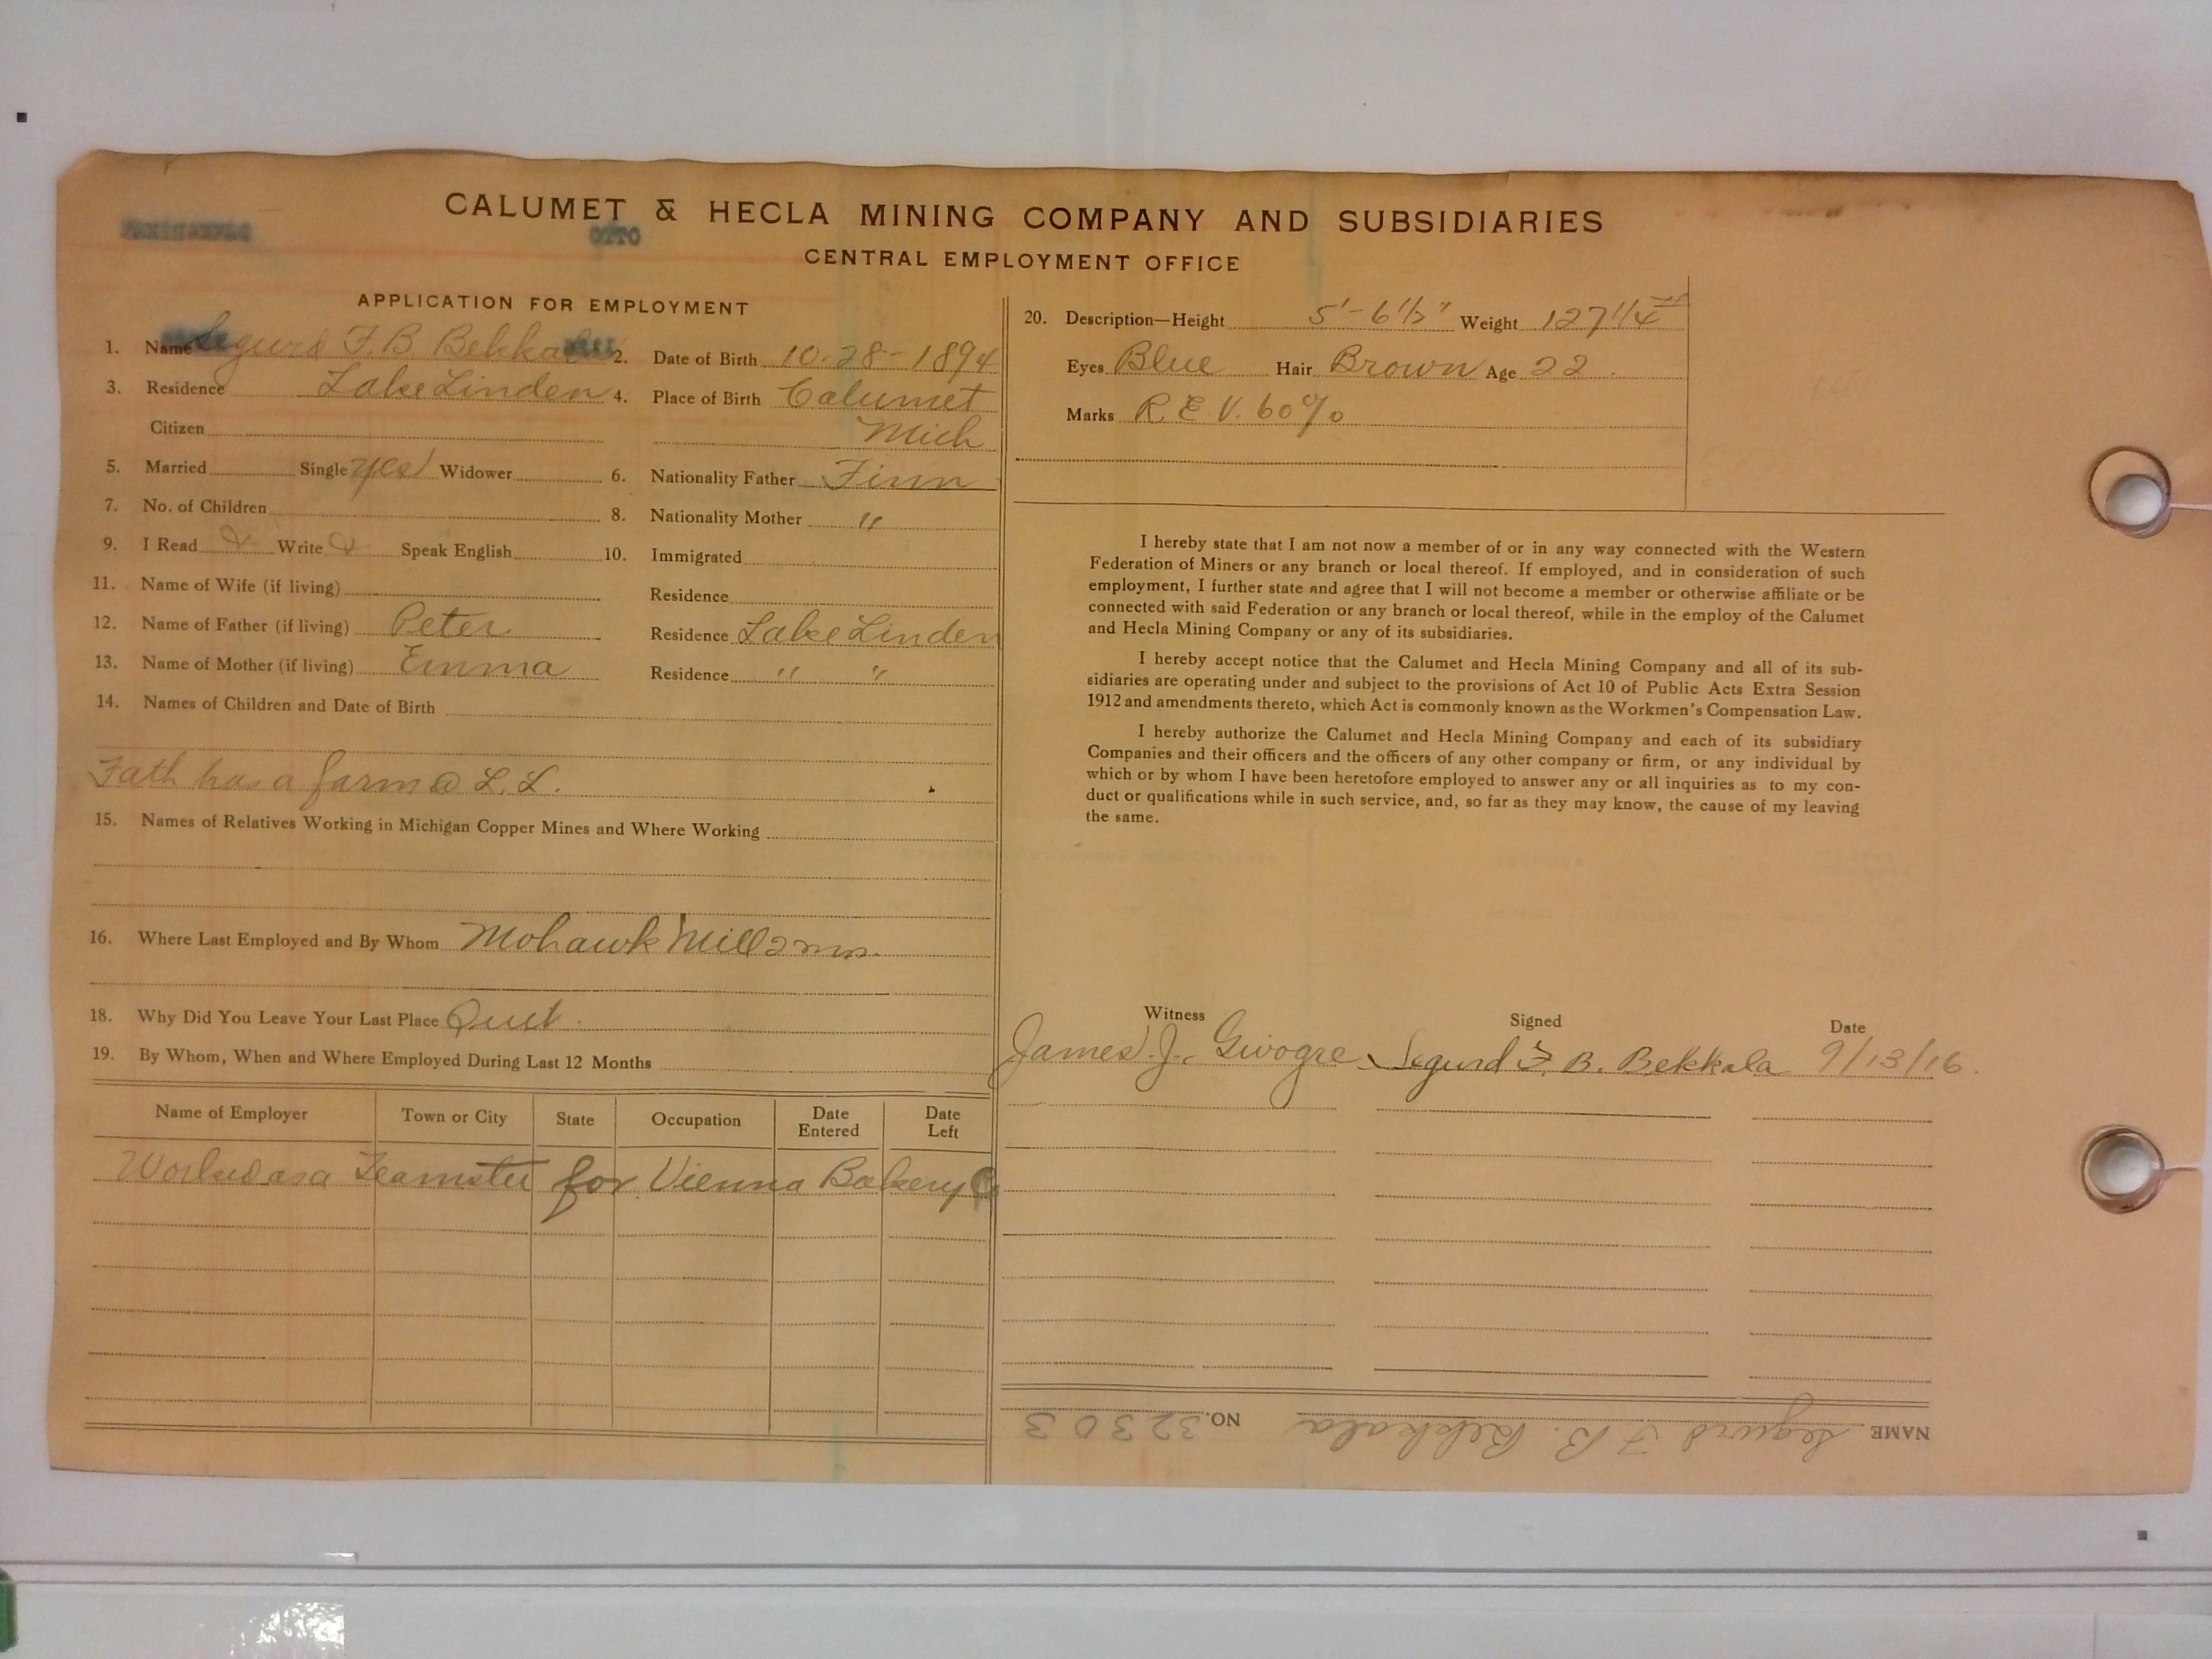 CALUMET & HECLA MINING COMPANY AND SUBSIDIARIES
OTTO
CENTRAL EMPLOYMENT OFFICE
APPLICATION FOR EMPLOYMENT
1. Name Segurd F. B. Bekkala 2. Date of Birth 10-28-1894
3. Residence Lake Linden 4. Place of Birth Calumet
Citizen Mich
5. Married Single yes Widower 6. Nationality Father Finn
7. No. of Children 8. Nationality Mother "
9. I Read Write Speak English 10. Immigrated
11. Name of Wife (if living) Residence
12. Name of Father (if living) Peter Residence Lake Linden
13. Name of Mother (if living) Emma Residence " "
14. Names of Children and Date of Birth
Fath has a farm @ L. L.
15. Names of Relatives Working in Michigan Copper Mines and Where Working
16. Where Last Employed and By Whom Mohawk Mill 2 mos.
18. Why Did You Leave Your Last Place Quit.
19. By Whom, When and Where Employed During Last 12 Months
Name of Employer Town or City State Occupation Date Entered Date Left
Worked as a Teamster for Vienna Bakery Co
20. Description—Height 5'-6 1/2" Weight 127 1/4 #
Eyes Blue Hair Brown Age 22.
Marks R. E. V. 60%
I hereby state that I am not now a member of or in any way connected with the Western
Federation of Miners or any branch or local thereof. If employed, and in consideration of such
employment, I further state and agree that I will not become a member or otherwise affiliate or be
connected with said Federation or any branch or local thereof, while in the employ of the Calumet
and Hecla Mining Company or any of its subsidiaries.
I hereby accept notice that the Calumet and Hecla Mining Company and all of its sub-
sidiaries are operating under and subject to the provisions of Act 10 of Public Acts Extra Session
1912 and amendments thereto, which Act is commonly known as the Workmen's Compensation Law.
I hereby authorize the Calumet and Hecla Mining Company and each of its subsidiary
Companies and their officers and the officers of any other company or firm, or any individual by
which or by whom I have been heretofore employed to answer any or all inquiries as to my con-
duct or qualifications while in such service, and, so far as they may know, the cause of my leaving
the same.
Witness Signed Date
James J. Givogre Segurd F. B. Bekkala 9/13/16.
NAME Segurd F B. Bekkala NO. 32303